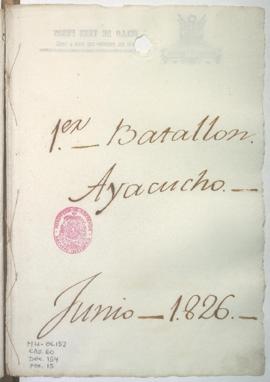 1.er — Batallon.
Ayacucho. —
Junio — 1.826. —
MU-06152
CAJ. 60
DOC. 154
FOL. 15